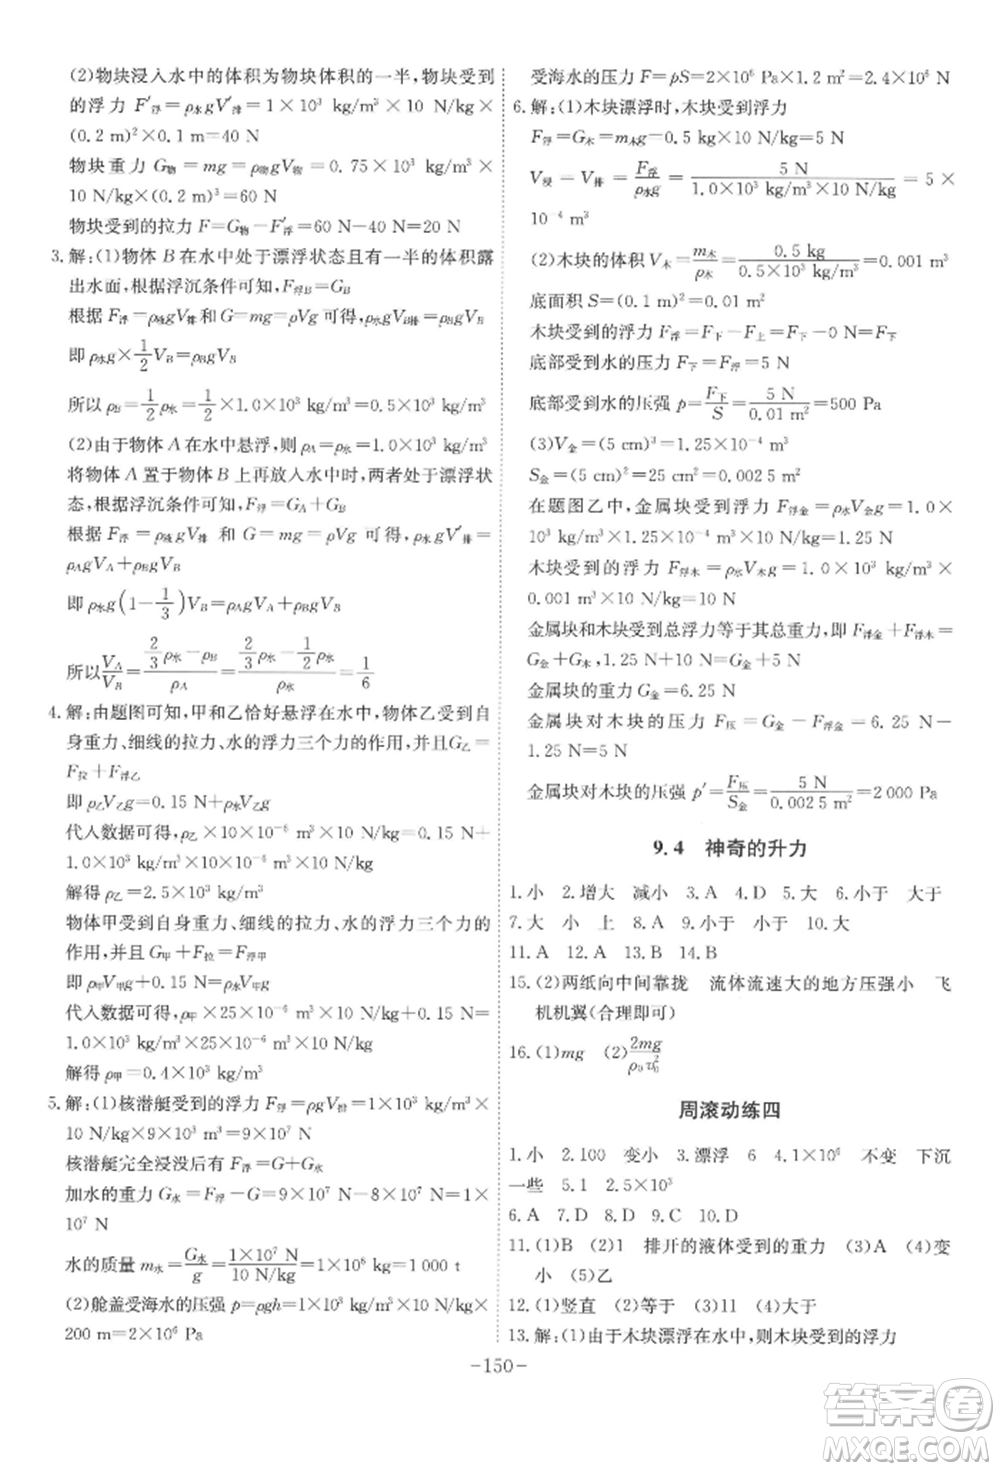 (2)物块浸入水中的体积为物块体积的一半,物块受到
的浮力 F′浮=ρ水gV′排=1×10³ kg/m³×10 N/kg×
(0.2 m)²×0.1 m=40 N
物块重力 G物=mg=ρ物gV物=0.75×10³ kg/m³
×10 N/kg×(0.2 m)³=60 N
物块受到的拉力 F=G物-F′浮=60 N-40 N=20 N
3.解:(1)物体 B 在水中处于漂浮状态且有一半的体积露
出水面,根据浮沉条件可知,F浮B=GB
根据 F浮=ρ液gV排和 G=mg=ρVg 可得,ρ水gV排=ρBgVB
即 ρ水g×1/2VB=ρBgVB
所以 ρB=1/2ρ水=1/2×1.0×10³ kg/m³=0.5×10³ kg/m³
(2)由于物体 A 在水中悬浮,则 ρA=ρ水=1.0×10³ kg/m³
将物体 A 置于物体 B 上再放入水中时,两者处于漂浮状
态,根据浮沉条件可知,F浮=GA+GB
根据 F浮=ρ液gV排 和 G=mg=ρVg 可得,ρ水gV′排=
ρAgVA+ρBgVB
即 ρ水g(1-1/3)VB=ρAgVA+ρBgVB
所以VA/VB=(2/3ρ水-ρB)/ρA=(2/3ρ水-1/2ρ水)/ρ水=1/6
4.解:由题图可知,甲和乙恰好悬浮在水中,物体乙受到自
身重力、细线的拉力、水的浮力三个力的作用,并且G乙=
F拉+F浮乙
即 ρ乙V乙g=0.15 N+ρ水V乙g
代入数据可得,ρ乙×10×10⁻⁶ kg/m³×10=0.15 N+
1.0×10³ kg/m³×10×10⁻⁶ kg/m³×10
解得 ρ乙=2.5×10³ kg/m³
物体甲受到自身重力、细线的拉力、水的浮力三个力的
作用,并且 G甲+F拉=F浮甲
即 ρ甲V甲g+0.15 N=ρ水V甲g
代入数据可得,ρ甲×25×10⁻⁶ kg/m³×10+0.15 N=
1.0×10³ kg/m³×25×10⁻⁶ kg/m³×10
解得 ρ甲=0.4×10³ kg/m³
5.解:(1)核潜艇受到的浮力 F浮=ρgV排=1×10³ kg/m³×
10 N/kg×9×10³ m³=9×10⁷ N
核潜艇完全浸没后有 F浮=G+G水
加水的重力 G水=F浮-G=9×10⁷ N-8×10⁷ N=1×
10⁷ N
水的质量 m水=G水/g=1×10⁷ N/10 N/kg=1×10⁶ kg=1 000 t
(2)舱盖受海水的压强 p=ρgh=1×10³ kg/m³×10 N/kg×
200 m=2×10⁶ Pa
受海水的压力 F=pS=2×10⁶ Pa×1.2 m²=2.4×10⁶ N
6.解:(1)木块漂浮时,木块受到浮力
F浮=G木=m木g=0.5 kg×10 N/kg=5 N
V浸=V排=F浮/ρ水g=5 N/1.0×10³ kg/m³×10 N/kg=5×
10⁻⁴ m³
(2)木块的体积 V木=m木/ρ木=0.5 kg/0.5×10³ kg/m³=0.001 m³
底面积 S=(10 cm)²=0.01 m²
木块受到的浮力 F浮=F下-F上=F下-0=F下
底部受到水的压力 F下=F浮=5 N
底部受到水的压强 p=F下/S=5 N/0.01 m²=500 Pa
(3)V金=(5 cm)³=1.25×10⁻⁴ m³
S金=(5 cm)²=25 cm²=0.002 5 m²
在题图乙中,金属块受到浮力 F浮金=ρ水V金g=1.0×
10³ kg/m³×1.25×10⁻⁴ m³×10 N/kg=1.25 N
木块受到浮力 F浮木=ρ水V木g=1.0×10³ kg/m³×
0.001 m³×10 N/kg=10 N
金属块和木块受到总浮力等于其总重力,即 F浮金+F浮木=
G金+G木,1.25 N+10 N=G金+5 N
金属块的重力 G金=6.25 N
金属块对木块的压力 F压=G金-F浮金=6.25 N-
1.25 N=5 N
金属块对木块的压强 p′=F压/S金=5 N/0.002 5 m²=2 000 Pa
9.4 神奇的升力
1.小 2.增大 减小 3.A 4.D 5.大 6.小于 大于
7.大 小 上 8.A 9.大于 小于 10.大
11.A 12.A 13.B 14.B
15.(2)两纸向中间靠拢 流体流速大的地方压强小 飞
机机翼(合理即可)
16.(1)mg (2)2mg/ρ₀πr₀²
周滚动练四
1.小 2.100 变小 3.漂浮 6 4.1×10⁶ 不变 下沉
一些 5.1 2.5×10³
6.A 7.D 8.D 9.C 10.D
11.(1)B (2)1 排开的液体受到的重力 (3)A (4)变
小 (5)乙
12.(1)竖直 (2)等于 (3)1 (4)大于
13.解:(1)由于木块漂浮在水中,则木块受到的浮力
-150-
答案卷
MXQE.COM